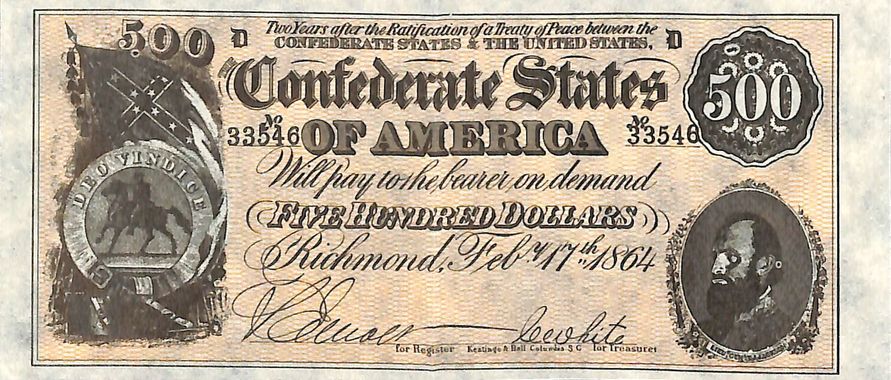 500 D Two Years after the Ratification of a Treaty of Peace between the D
CONFEDERATE STATES & THE UNITED STATES,
Confederate States
500
No 33546 OF AMERICA No 33546
Will pay to the bearer on demand
DEO VINDICE
FIVE HUNDRED DOLLARS
Richmond, Feby 17th 1864
C White
for Register Keatinge & Ball Columbia S C for Treasurer